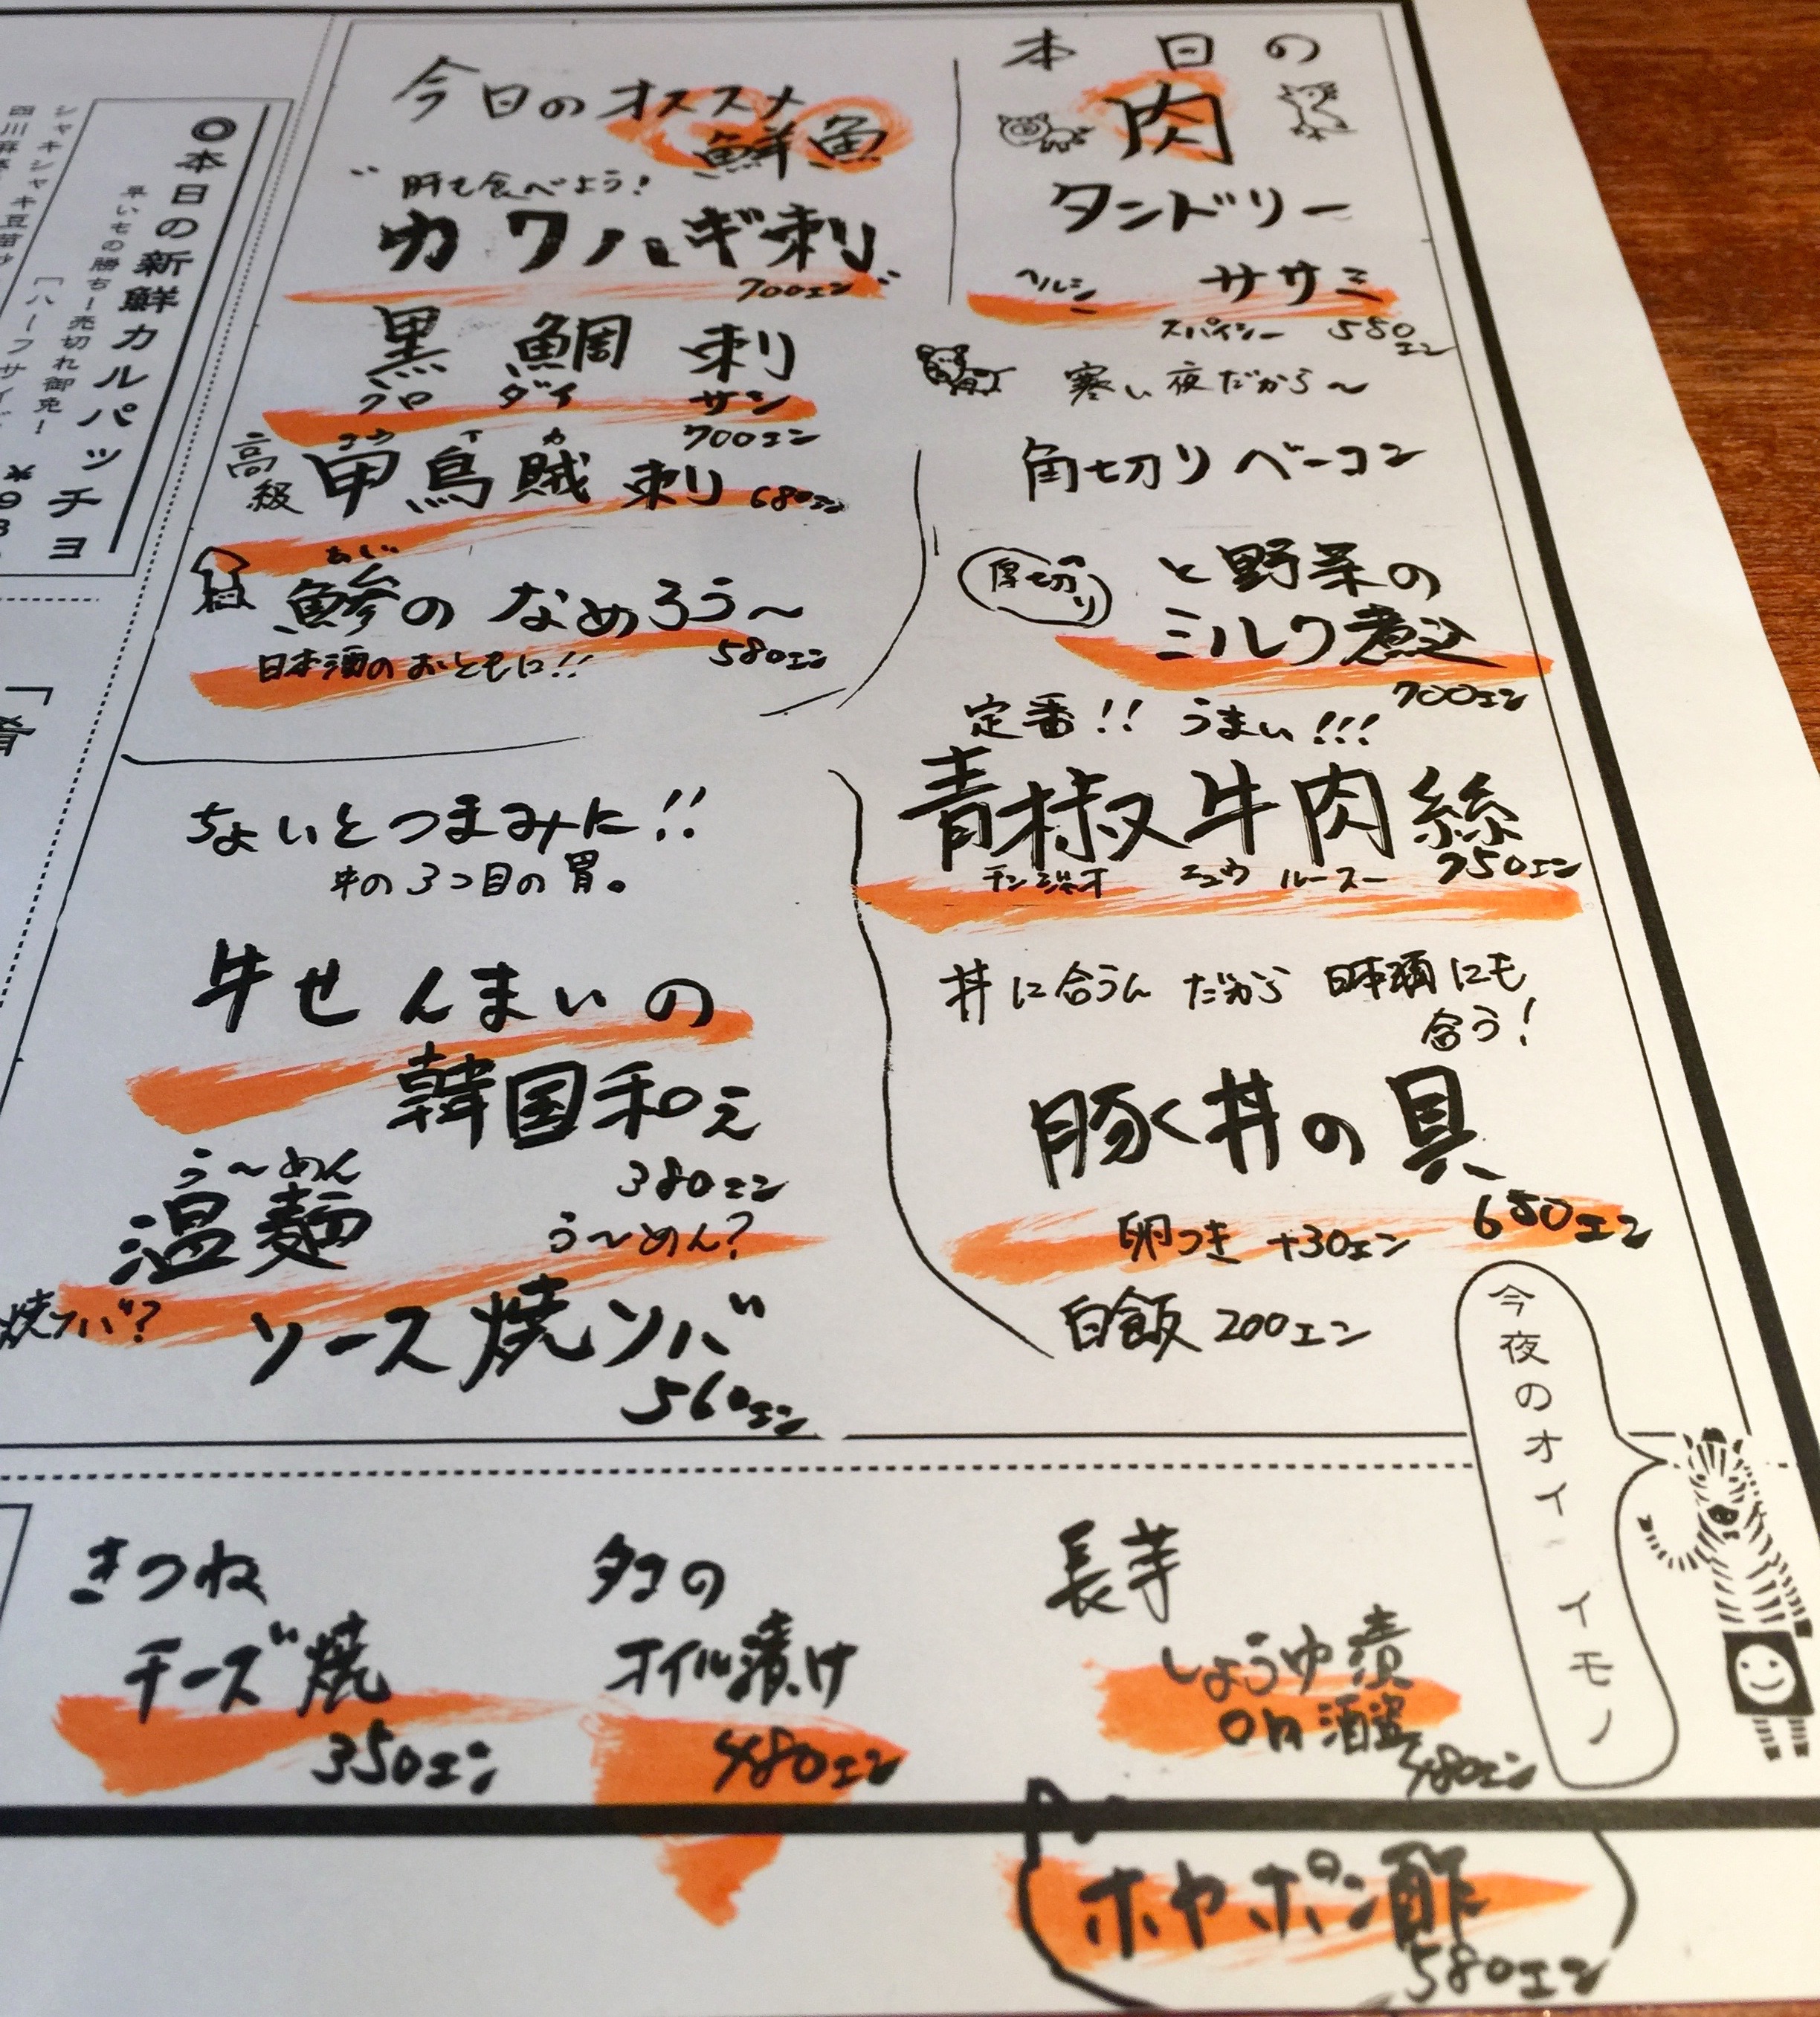 ◎本日の新鮮カルパッチョ
早いもの勝ち！売切れ御免！
今日のオススメ
鮮魚
肝も食べよう！
カワハギ刺
700エン
黒鯛刺
クロ ダイ サシ
700エン
コウ イ カ
高級 甲烏賊刺 680エン
あじ
鯵のなめろう〜
日本酒のおともに!! 580エン
本日の
肉
タンドリー
ヘルシー ササミ
スパイシー 580エン
寒い夜だから〜
角切りベーコン
厚切り と野菜の
ミルク煮込
700エン
定番!! うまい!!!
青椒牛肉絲
チンジャオ ニュウ ルースー 750エン
丼に合うんだから日本酒にも
合う！
豚く丼の具
680エン
卵つき +30エン
白飯 200エン
ちょいとつまみに!!
牛の3つ目の胃。
牛せんまいの
韓国和え
380エン
う〜めん
温麺
う〜めん?
焼ソバ?
ソース焼ソバ
560エン
きつね
チーズ焼
350エン
タコの
オイル漬け
480エン
長芋
しょうゆ漬
on 酒盗
480エン
今夜のオイシイモノ
ホヤポン酢
580エン